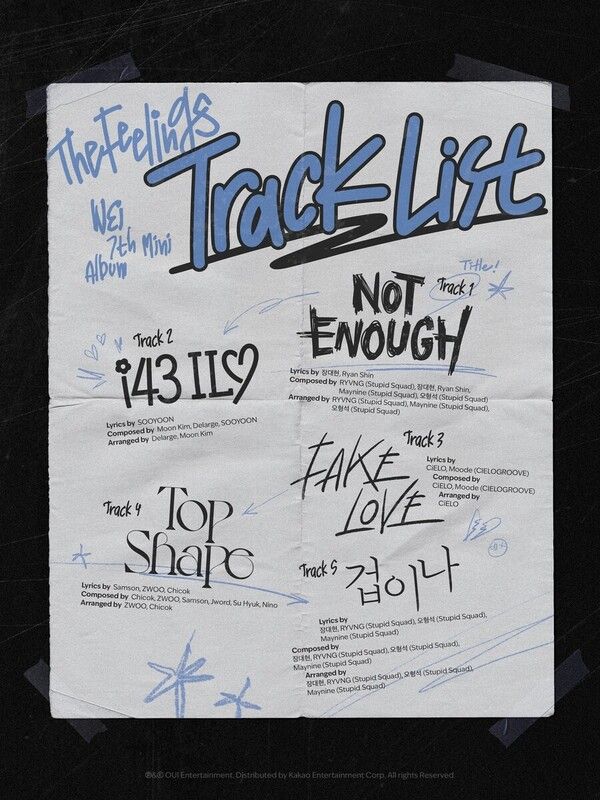 The Feelings
Track List
WEi
7th Mini
Album
Title!
Track 1
NOT
ENOUGH
Lyrics by 장대현, Ryan Shin
Composed by RYVNG (Stupid Squad), 장대현, Ryan Shin,
Maynine (Stupid Squad), 오형석 (Stupid Squad)
Arranged by RYVNG (Stupid Squad), Maynine (Stupid Squad),
오형석 (Stupid Squad)
Track 2
i43 IL♡
Lyrics by SOOYOON
Composed by Moon Kim, Delarge, SOOYOON
Arranged by Delarge, Moon Kim
Track 3
FAKE
LOVE
Lyrics by
CIELO, Moode (CIELOGROOVE)
Composed by
CIELO, Moode (CIELOGROOVE)
Arranged by
CIELO
Track 4
Top
Shape
Lyrics by Samson, ZWOO, Chicok
Composed by Chicok, ZWOO, Samson, Jword, Su Hyuk, Nino
Arranged by ZWOO, Chicok
Track 5
겁이나
Lyrics by
장대현, RYVNG (Stupid Squad), 오형석 (Stupid Squad),
Maynine (Stupid Squad)
Composed by
장대현, RYVNG (Stupid Squad), 오형석 (Stupid Squad),
Maynine (Stupid Squad)
Arranged by
장대현, RYVNG (Stupid Squad), 오형석 (Stupid Squad),
Maynine (Stupid Squad)
℗&© OUI Entertainment, Distributed by Kakao Entertainment Corp. All rights Reserved.